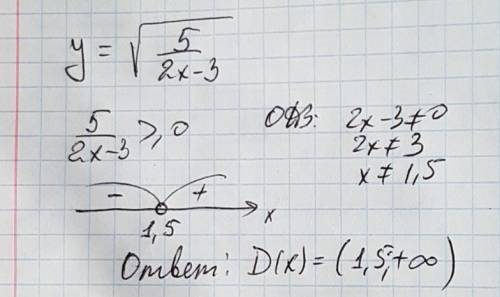 y = √(5/(2x-3))
5/(2x-3) ≥ 0
ОДЗ: 2x-3≠0
2x≠3
x≠1,5
- +
1,5 x
Ответ: D(x) = (1,5;+∞)